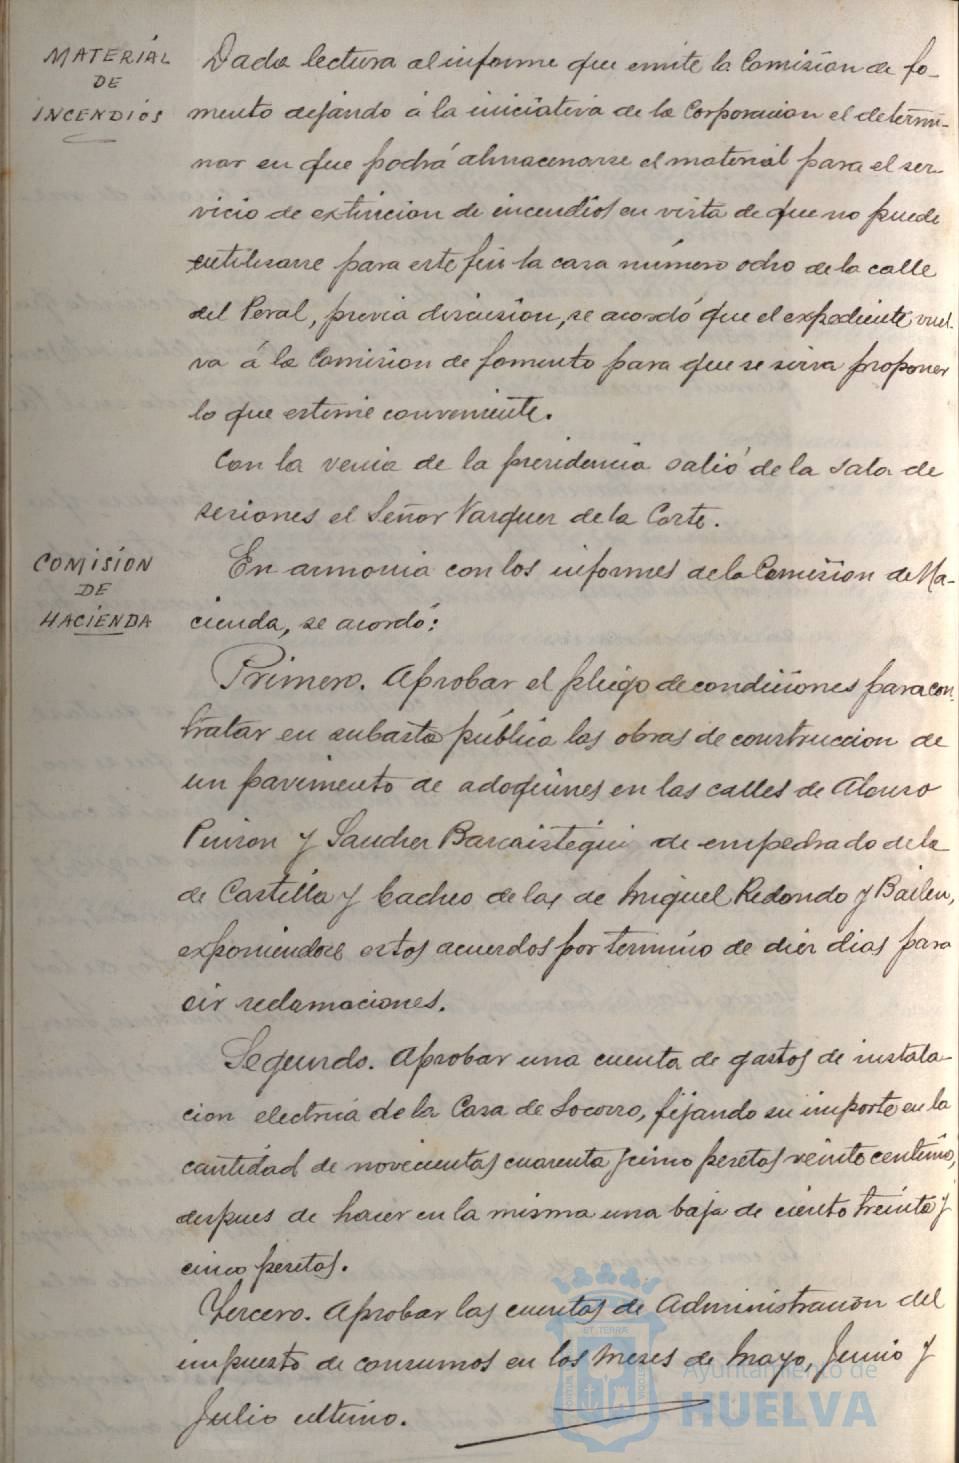 MATERIAL
DE
INCENDIOS
Dada lectura al informe que emite la Comision de fo-
mento dejando á la iniciativa de la Corporacion el determi-
nar en que podrá almacenarse el material para el ser-
vicio de extincion de incendios en vista de que no puede
utilisarse para este fin la casa número ocho de la calle
del Peral, previa discusion, se acordó que el expediente vuel-
va á la Comision de fomento para que se sirva proponer
lo que estime conveniente.
Con la venia de la presidencia salió de la sala de
sesiones el Señor Vazquez de la Corte.
COMISION
DE
HACIENDA
En armonia con los informes de la Comision de Ha-
cienda, se acordó:
Primero. Aprobar el pliego de condiciones para con-
tratar en subasta pública las obras de construccion de
un pavimento de adoquines en las calles de Alonso
Pinzon y Sanchez Barcaiztegui de empedrado de la
de Castilla y bacheo de las de Miguel Redondo y Bailen,
exponiendose estos acuerdos por termino de diez dias para
oir reclamaciones.
Segundo. Aprobar una cuenta de gastos de instala-
cion electrica de la Casa de Socorro, fijando su importe en la
cantidad de novecientas cuarenta y cinco pesetas veinte centimos,
despues de hacer en la misma una baja de ciento treinta y
cinco pesetas.
Tercero. Aprobar las cuentas de Administracion del
impuesto de consumos en los meses de Mayo, Junio y
Julio ultimo.
Ayuntamiento de
HUELVA